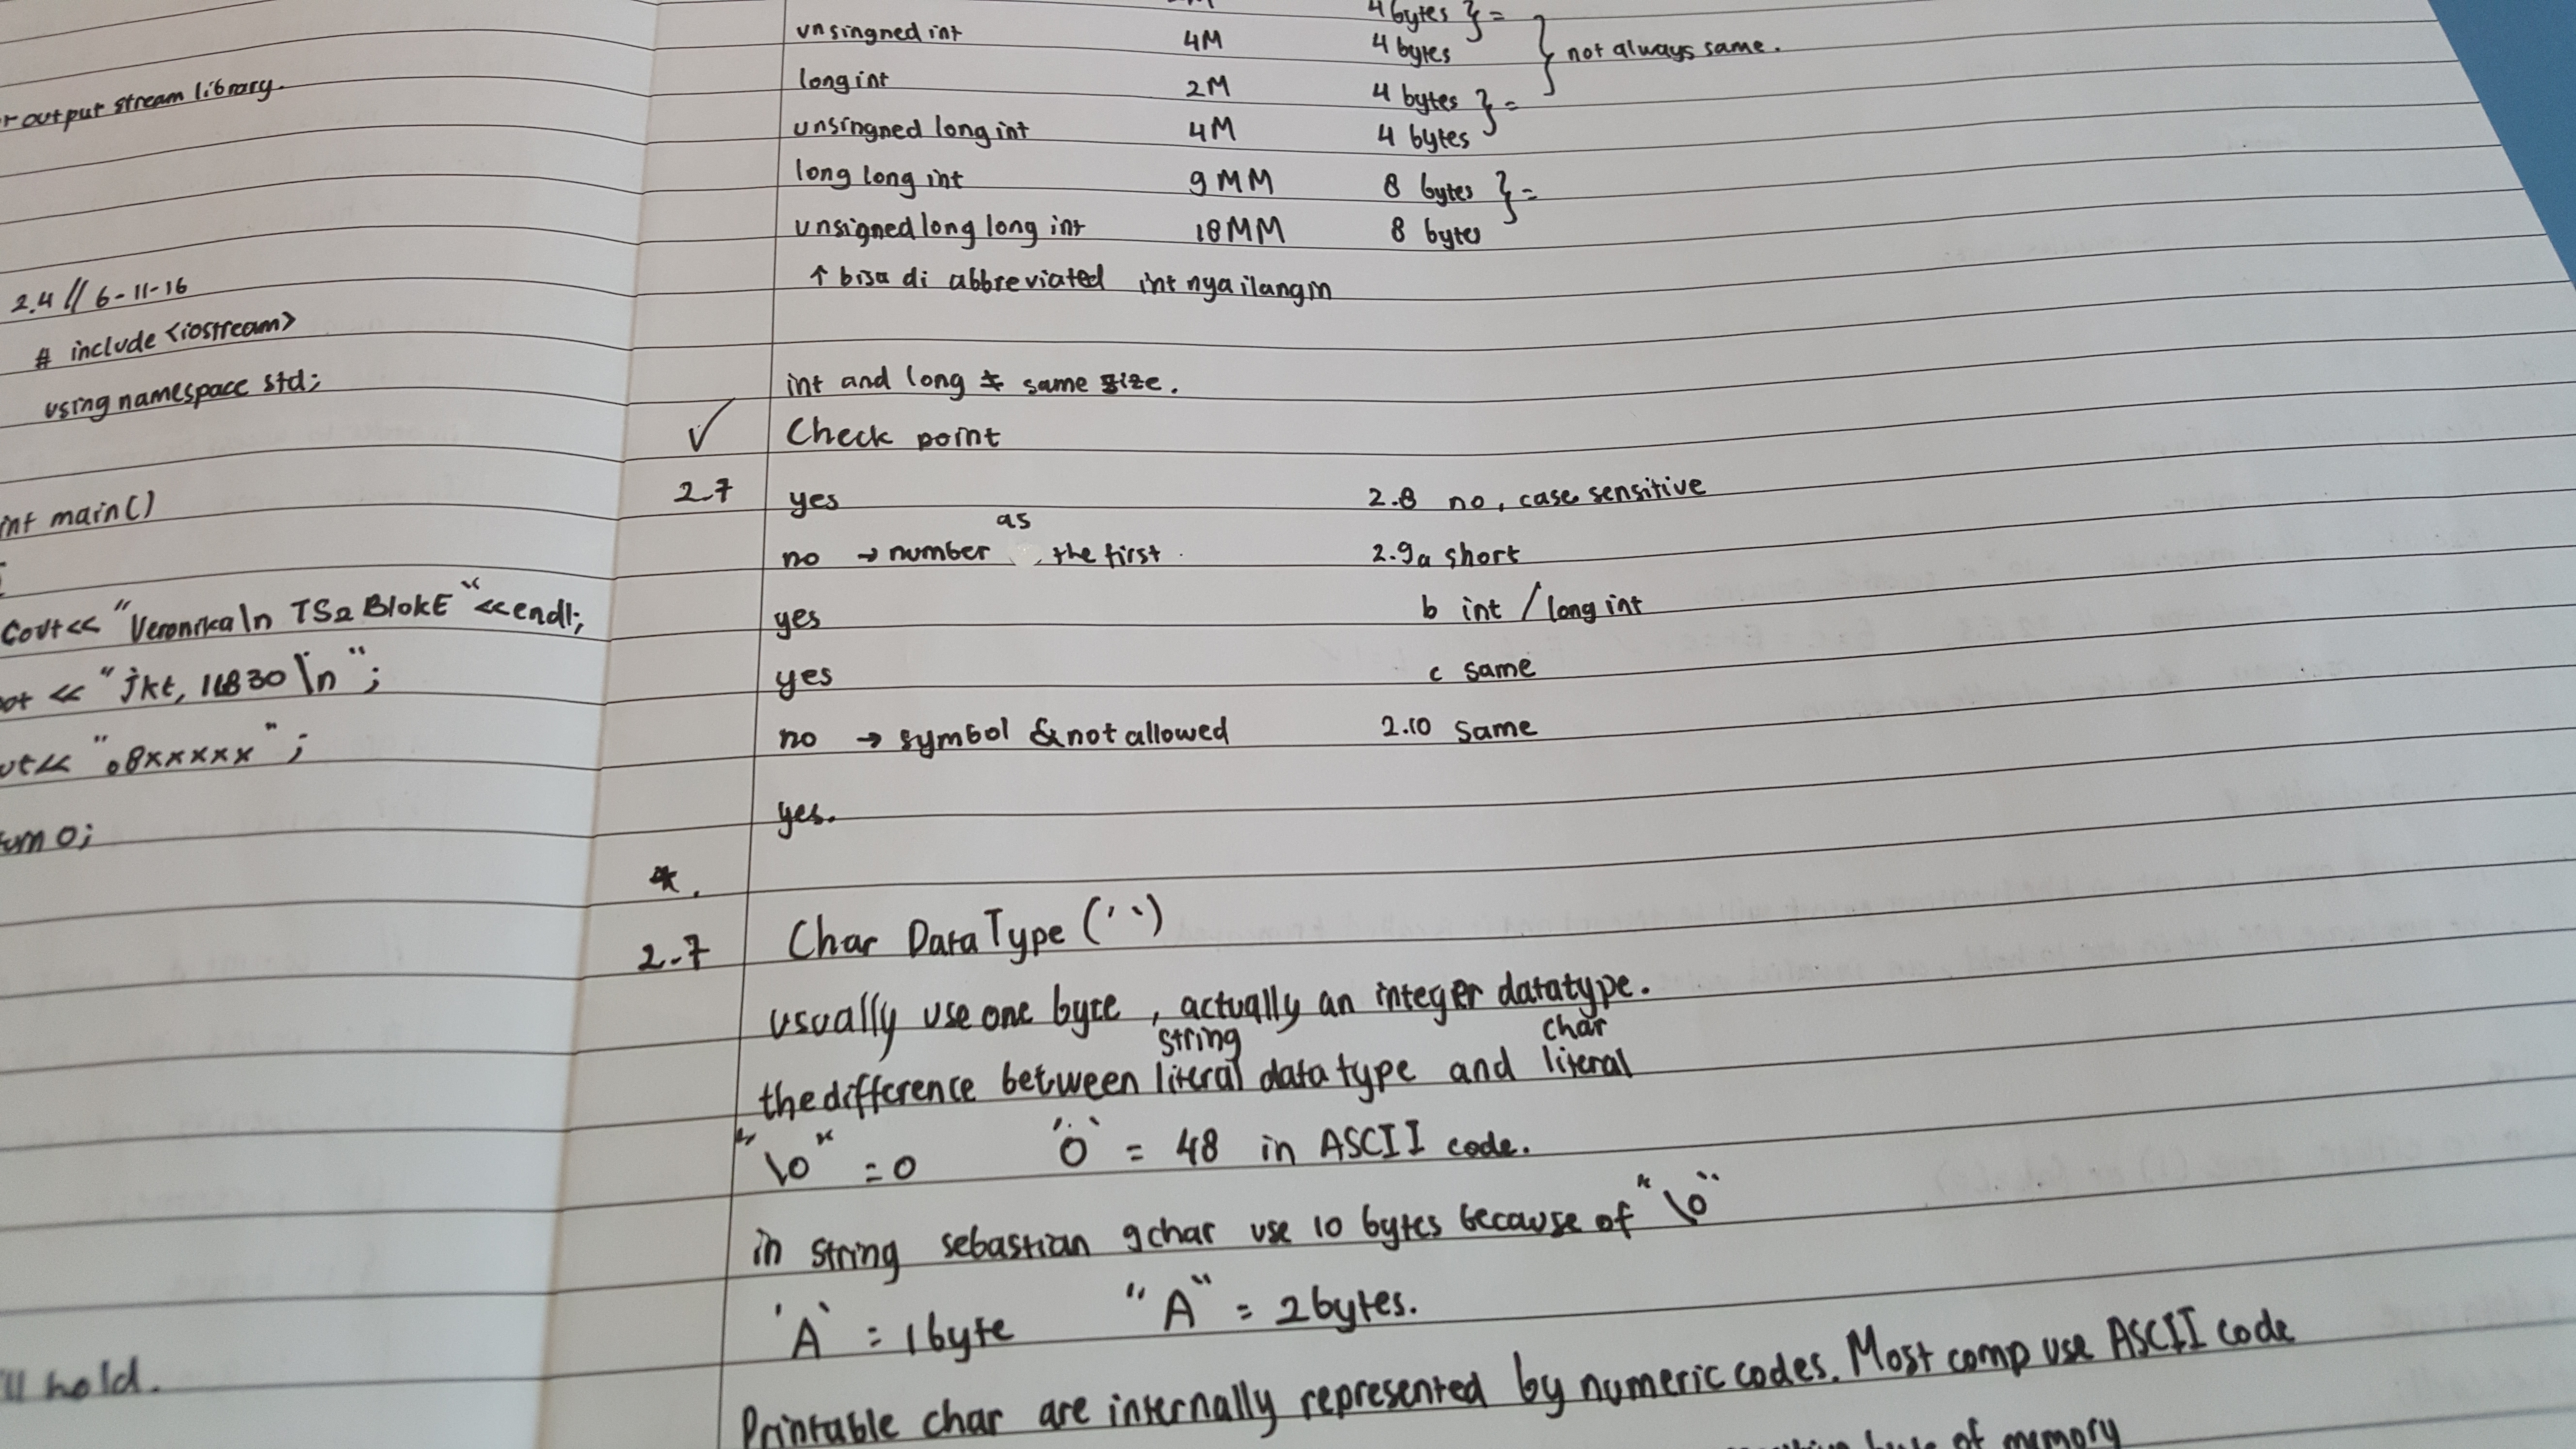 output stream library.
2.4 // 6-11-16
# include <iostream>
using namespace std;
int main()
cout << "Veronika \n TS2 Blok E" << endl;
<< "jkt, 11830 \n";
<< "08xxxxx";
0;
hold.
4 bytes } =
unsingned int 4M 4 bytes
} not always same.
long int 2M 4 bytes } =
unsingned long int 4M 4 bytes
long long int 9MM 8 bytes } =
unsigned long long int 18MM 8 bytes
↑ bisa di abbreviated int nya ilangin
int and long ≠ same size.
✓ Check point
2.7 yes 2.8 no, case sensitive
no → number as the first. 2.9a short
yes b int / long int
yes c same
no → symbol & not allowed 2.10 same
yes.
*.
2.7 Char Data Type ('')
usually use one byte, actually an integer datatype.
the difference between string literal data type and char literal
"\0" = 0 '0' = 48 in ASCII code.
in string sebastian 9 char use 10 bytes because of "\0"
'A' = 1 byte "A" = 2 bytes.
Printable char are internally represented by numeric codes. Most comp use ASCII code
of memory